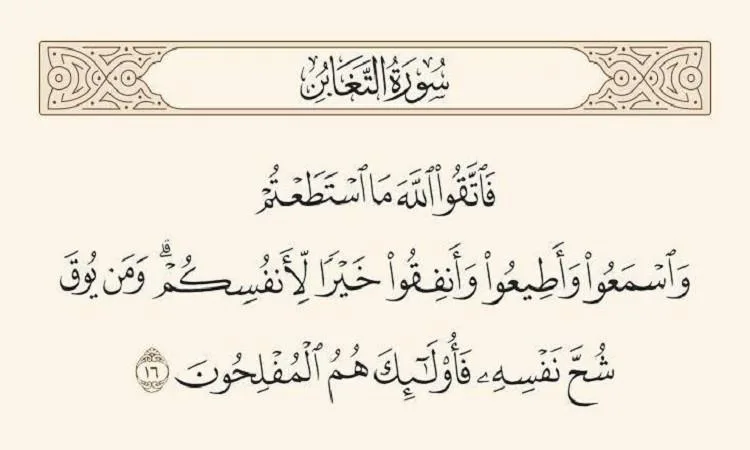 سُورَةُ التَّغَابُنِ
فَٱتَّقُوا۟ ٱللَّهَ مَا ٱسْتَطَعْتُمْ
وَٱسْمَعُوا۟ وَأَطِيعُوا۟ وَأَنفِقُوا۟ خَيْرًا لِّأَنفُسِكُمْ ۗ وَمَن يُوقَ
شُحَّ نَفْسِهِۦ فَأُو۟لَـٰٓئِكَ هُمُ ٱلْمُفْلِحُونَ ١٦